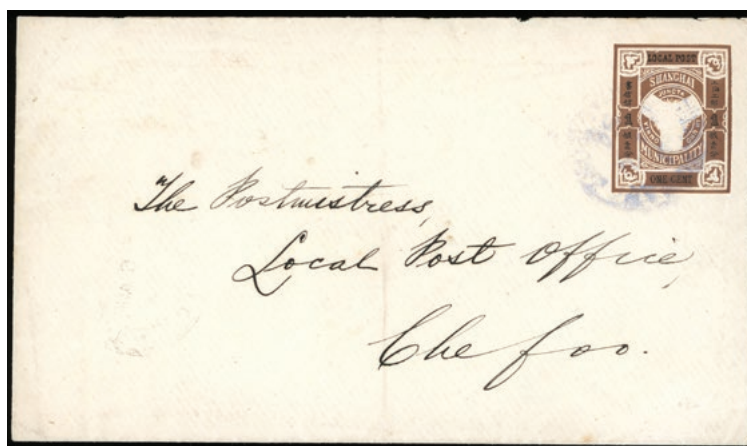 LOCAL POST
SHANGHAI
MUNICIPALITY
ONE CENT
"The Postmistress,
Local Post Office,
Chefoo.